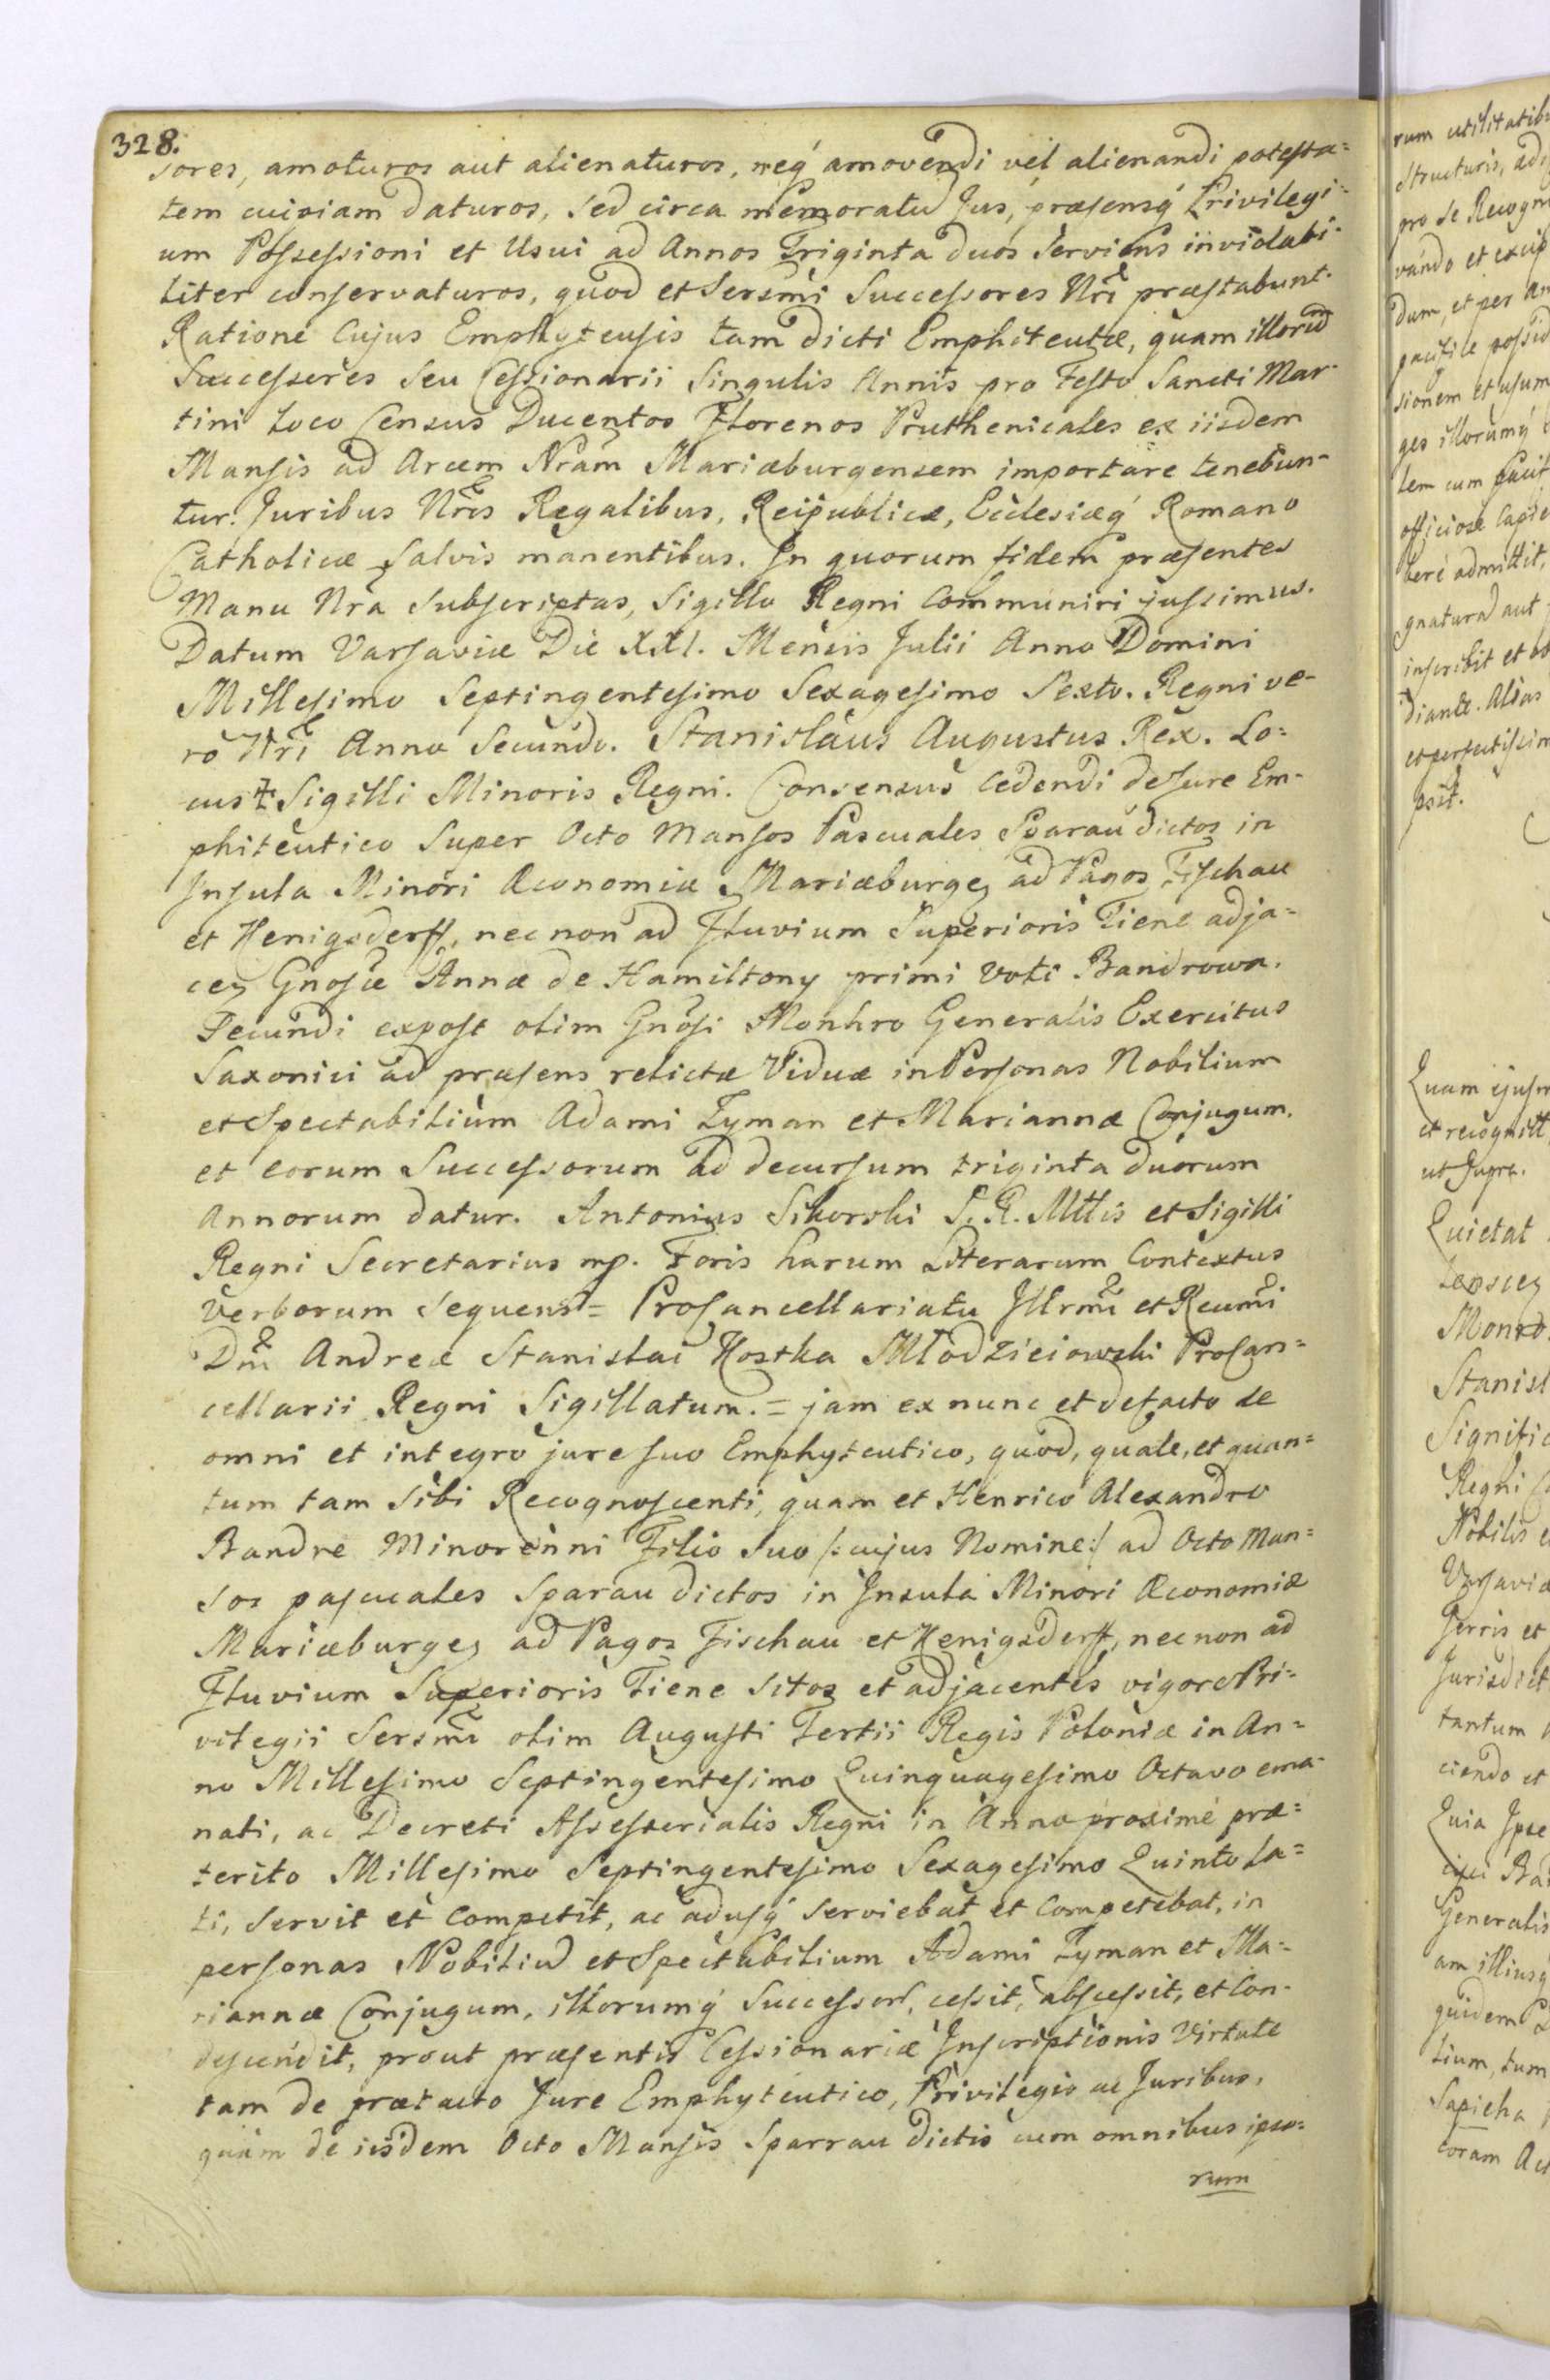 328.
sores, amoturos aut alienaturos, neq́ amovendi vel alienandi potesta=
tem cuipiam daturos, sed circa memoratũ Jus, præsensq́ Privilegi=
um Possessioni et Usui ad Annos Triginta duos Serviens inviolabi-
liter conservaturos, quod et Sersmi Successores Nri præstabunt.
Ratione Cujus Emphyteusis tam dicti Emphiteutæ, quam illorũ
Successores seu Cessionarii Singulis Annis pro Festo Sancti Mar-
tini Loco Census Ducentos Florenos Pruthenicales ex iisdem
Mansis ad Arcem Nram Mariæburgensem importare tenebun-
tur. Juribus Nris Regalibus, Reipublicæ, Ecclesiæq́ Romano
Catholicæ salvis manentibus. In quorum fidem præsentes
Manu Nrâ Subscriptas, Sigillo Regni Communiri jussimus.
Datum Varsaviæ Die XXI. Mensis Julii Anno Domini
Millesimo Septingentesimo Sexagesimo Sexto. Regni ve-
rò Nri Anno Secundo. Stanislaus Augustus Rex. Lo=
cus ‡ Sigilli Minoris Regni. Consensus Cedendi de Jure Em-
phiteutico Super Octo Mansos Pascuales Sparau dictos in
Insula Minori Œconomiæ Mariæburgeȝ ad Pagos Fischau
et Henigsderff, nec non ad Fluvium Superioris Tiene adja=
ceȝ Gnosæ Annæ de Hamiltony primi voti Bandrowa.
Secundi expost olim Gnosi Monhro Generalis Exercitus
Saxonici ad præsens relictæ Viduæ in Personas Nobilium
et Spectabilium Adami Tyman et Mariannæ Conjugum.
et eorum Successorum ad decursum triginta duorum
Annorum datur. Antonius Sikorski S. R. Mttis et Sigilli
Regni Secretarius mp. Foris harum Literarum Contextus
Verborum Sequens = Procancellariatu Illrmi et Reumi
Dni Andreæ Stanislai Kostka Młodzieiowski Procan=
cellarii Regni Sigillatum. = jam ex nunc et defacto de
omni et integro jure suo Emphyteutico, quod, quale, et quan=
tum tam sibi Recognoscenti, quam et Henrico Alexandro
Bandre Minorenni Filio suo /: cujus Nomine :/ ad Octo Man=
sos pascuales Sparau dictos in Insula Minori Œconomiæ
Mariæburgeȝ ad Pagos Fischau et Henigsderff, nec non ad
Fluvium Superioris Tiene sitos et adjacentes vigore Pri=
vilegii Sersmi olim Augusti Tertii Regis Poloniæ in An=
no Millesimo Septingentesimo Quinquagesimo Octavo ema-
nati, ac Decreti Assessorialis Regni in Anno proximè præ=
terito Millesimo Septingentesimo Sexagesimo Quinto La=
ti, servit et Competit, ac adusq́ serviebat et Competebat, in
personas Nobiliũ et Spectabilium Adami Tyman et Ma=
riannæ Conjugum, illorumq́ Successor, cessit, abscessit, et Con-
descendit, prout præsentis Cessionariæ Inscriptionis Virtute
tam de prætacto Jure Emphyteutico, Privilegio ac Juribus,
quàm de iisdem Octo Mansis Sparrau dictis cum omnibus ipso=
rum
rum utilitatib
structuris, ad
pro se Recogn
vando et excip
dum, et per an
pacifice possid
sionem et usum
ges illorumq́
tem cum
officiose
bere admittit,
gnaturã aut
inscribit et
diante. Alias
et perfectissim
psit.
Quam ejusm
et recognitt
ut supra.
Quietat
Monro
Stanisl
Signific
Regni
Nobilis e
Varsaviæ
Terris et
Jurisdict
tantum
ciendo et
Quia Ipse
Generalis
am illiusq́
quidem
tium, tum
Sapieha
coram Act